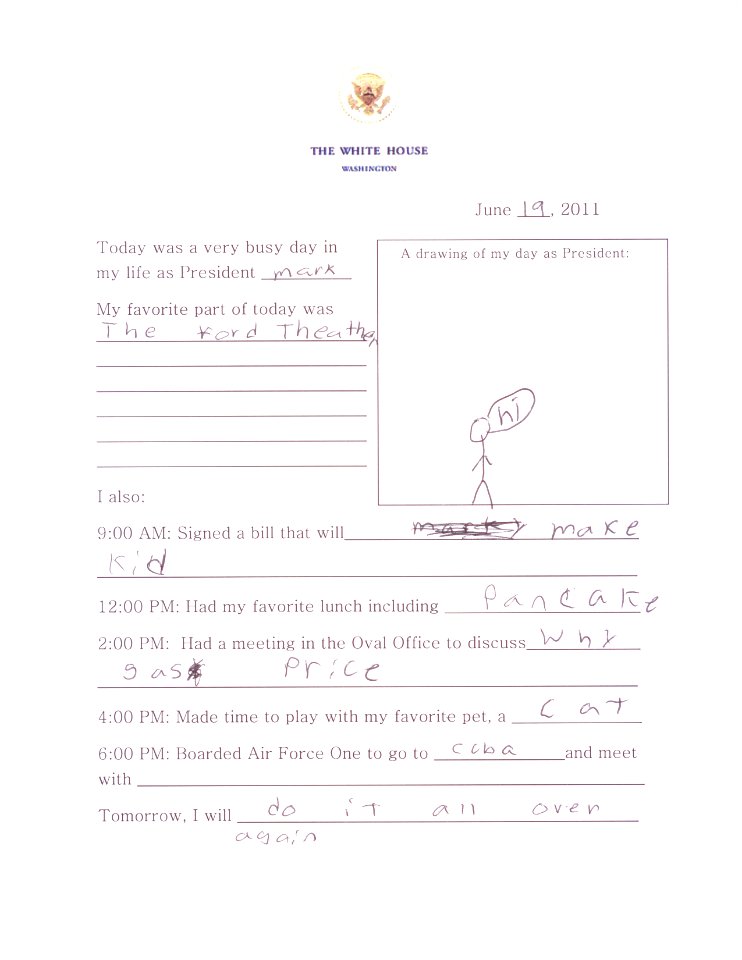 THE WHITE HOUSE
WASHINGTON
June 19, 2011
Today was a very busy day in
my life as President mark
My favorite part of today was
The Ford Theathe
A drawing of my day as President:
hi
I also:
9:00 AM: Signed a bill that will make
Kid
12:00 PM: Had my favorite lunch including Pancake
2:00 PM: Had a meeting in the Oval Office to discuss Why
gas Price
4:00 PM: Made time to play with my favorite pet, a Cat
6:00 PM: Boarded Air Force One to go to Cuba and meet
with
Tomorrow, I will do it all over
again